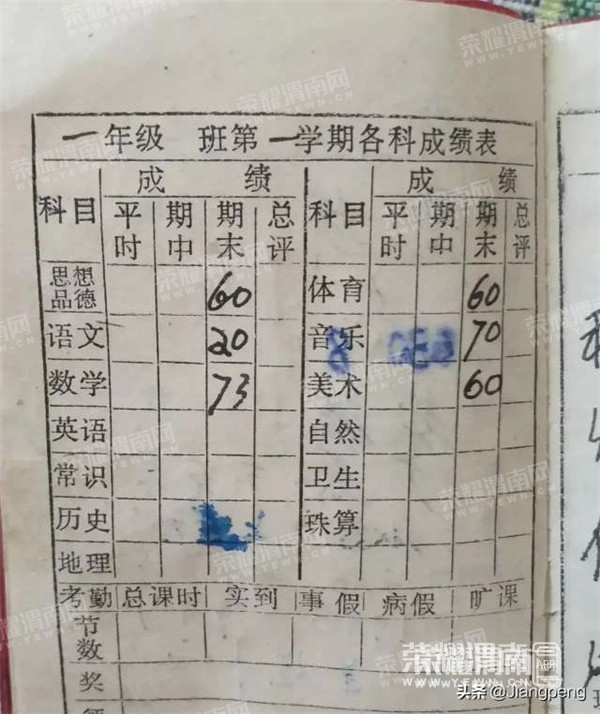 荣耀渭南网
WWW.YEWN.CN
一年级 班第一学期各科成绩表
科目 成绩 科目 成绩
平时 期中 期末 总评 平时 期中 期末 总评
思想品德 60 体育 60
语文 20 音乐 70
数学 73 美术 60
英语 自然
常识 卫生
历史 珠算
地理
考勤 总课时 实到 事假 病假 旷课
节数
奖
荣耀渭南
APP
头条 @Jiangpeng